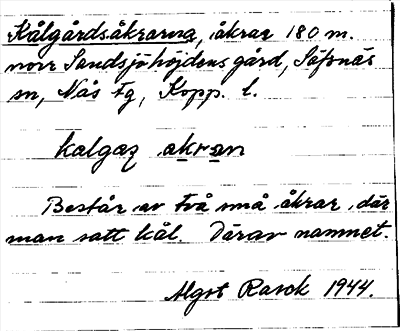 Kålgårdsåkrarna, åkrar 180 m.
norr Sandsjöhöjdens gård, Säfsnäs
sn, Nås tg, Kopp. l.
kalgaz akran
Består av två små åkrar, där
man satt kål. Därav namnet.
Algot Rask 1944.